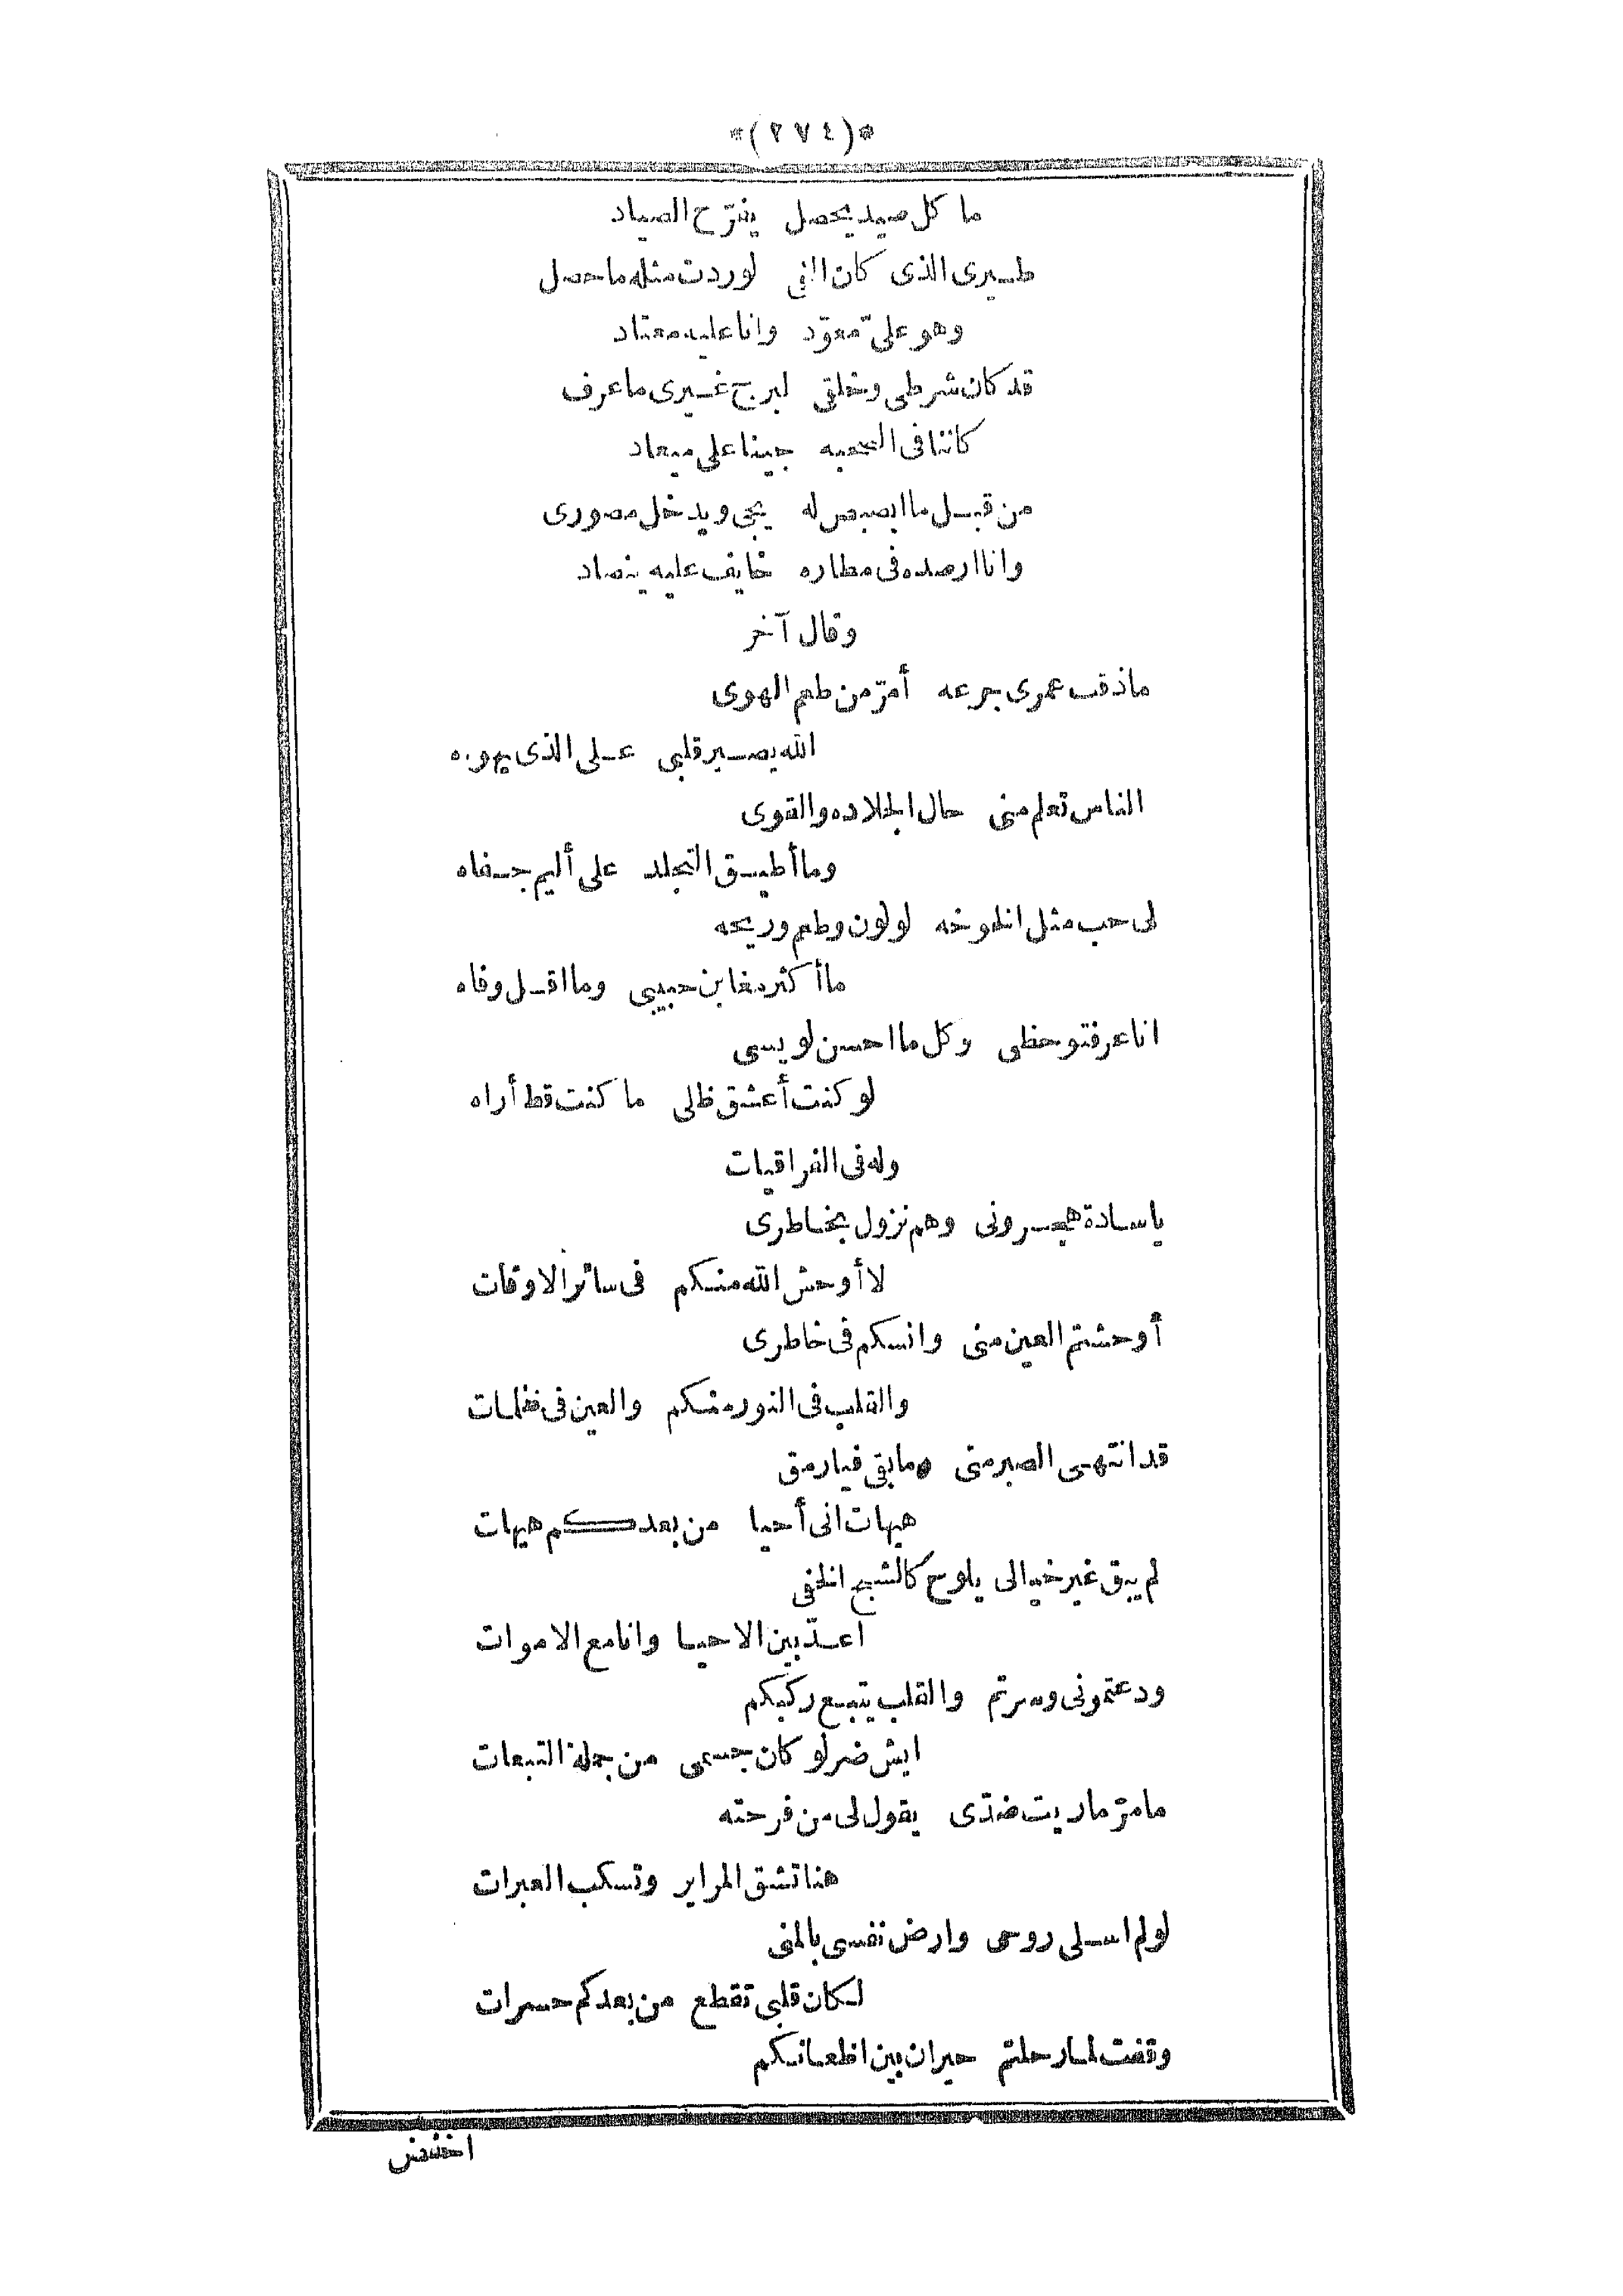 *(٢٧٤)*
ما كل صيد يحصل يفرّح الصياد
طيرى الذى كان الفى لوردت مثله ماحصل
وهو علىّ معوّد وانا عليه معتاد
قد كان شرطى وخلقى لبرج غيرى ماعرف
كاننا فى الصحبه جينا على ميعاد
من قبل ما ابصبص له يجى ويدخل مصورى
وانا ارصده فى مطاره خايف عليه ينصاد
وقال آخر
ماذقت عمرى جرعه أمرّ من طعم الهوى
الله يصبر قلبى على الذى يهوه
الناس تعلم منى حال الجلاده والقوى
وما أطيق التجلد على أليم جفاه
لى حب مثل الخوخه لولون وطعم وريحه
ما أكثر مغابن حبيبى وما اقل وفاه
انا عرفتو حظى وكل ما احسن لو يسى
لو كنت أعشق ظلى ما كنت قط أراه
وله فى الفراقيات
ياسادة هجرونى وهم نزول بخاطرى
لا أوحش الله منكم فى سائر الاوقات
أوحشتم العين منى وانسكم فى خاطرى
والقلب فى النور منكم والعين فى ظلمات
قد انتهى الصبر منى ومابقى فيا رمق
هيهات انى أحيا من بعدكم هيهات
لم يبق غير خيالى يلوح كالشبح الخفى
اعدّ بين الاحيا وانا مع الاموات
ودعتمونى وسرتم والقلب يتبع ركبكم
ايش ضر لو كان جسمى من جملة التبعات
مامرّ ماريت ضدّى يقول لى من فرحته
هنا تشق المراير وتسكب العبرات
لولم اسلى روحى وارض نفسى بالمنى
لكان قلبى تقطع من بعدكم حسرات
وقفت لما رحلتم حيران بين اظعانكم